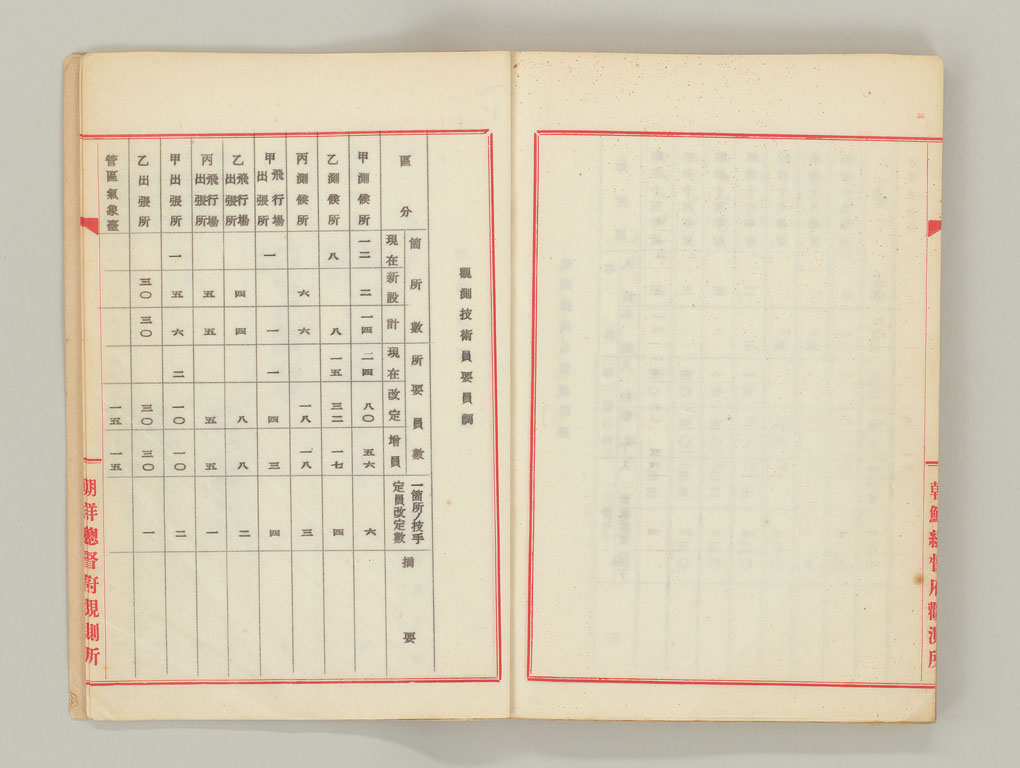 朝鮮總督府觀測所
觀測技術員要員調
區分 箇所數 現在 新設 計 所要員數 現在 改定 增員 一箇所ノ技手定員改定數 摘要
甲測候所 一二 二 一四 二四 八〇 五六 六
乙測候所 八 八 一五 三二 一七 四
丙測候所 六 六 一八 一八 三
飛行場甲出張所 一 一 一 四 三 四
飛行場乙出張所 四 四 八 八 二
飛行場丙出張所 五 五 五 五 一
甲出張所 一 五 六 二 一〇 一〇 二
乙出張所 三〇 三〇 三〇 三〇 一
管區氣象臺 一五 一五
朝鮮總督府觀測所